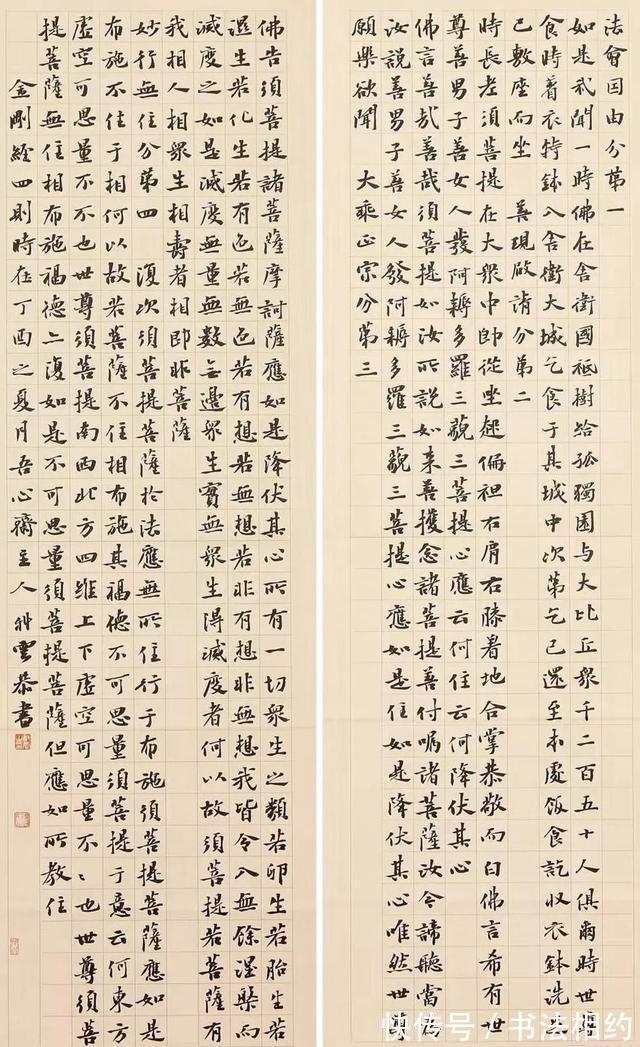 法會因由分第一
如是我聞一時佛在舍衛國祗樹給孤獨園与大比丘衆千二百五十人俱爾時世尊
食時着衣持鉢入舍衛大城乞食于其城中次第乞已還至本處飯食訖収衣鉢洗足
已敷座而坐 善現啟請分第二
時長老須菩提在大衆中即從坐起偏袒右肩右膝着地合掌恭敬而白佛言希有世
尊善男子善女人發阿耨多羅三藐三菩提心應云何住云何降伏其心
佛言善哉善哉須菩提如汝所説如来善護念諸菩提善付囑諸菩薩汝今諦聽當爲
汝説善男子善女人發阿耨多羅三藐三菩提心應如是住如是降伏其心唯然世尊
願樂欲聞 大乘正宗分第三
佛告須菩提諸菩薩摩訶薩應如是降伏其心所有一切衆生之類若卵生若胎生若
濕生若化生若有色若無色若有想若無想若非有想非無想我皆令入無餘涅槃而
滅度之如是滅度無量無數无邊衆生實無衆生得滅度者何以故須菩提若菩薩有
我相人相衆生相壽者相即非菩薩
妙行無住分第四 復次須菩提菩薩於法應無所住行于布施須菩提菩薩應如是
布施不住于相何以故若菩薩不住相布施其福德不可思量須菩提于意云何東方
虛空可思量不不也世尊須菩提南西北方四維上下虛空可思量不〻也世尊須菩
提菩薩無住相布施福德亦復如是不可思量須菩提菩薩但應如所教住
金剛經四則時在丁酉之夏月吾心齋主人雲恭書
快传号／书法相约